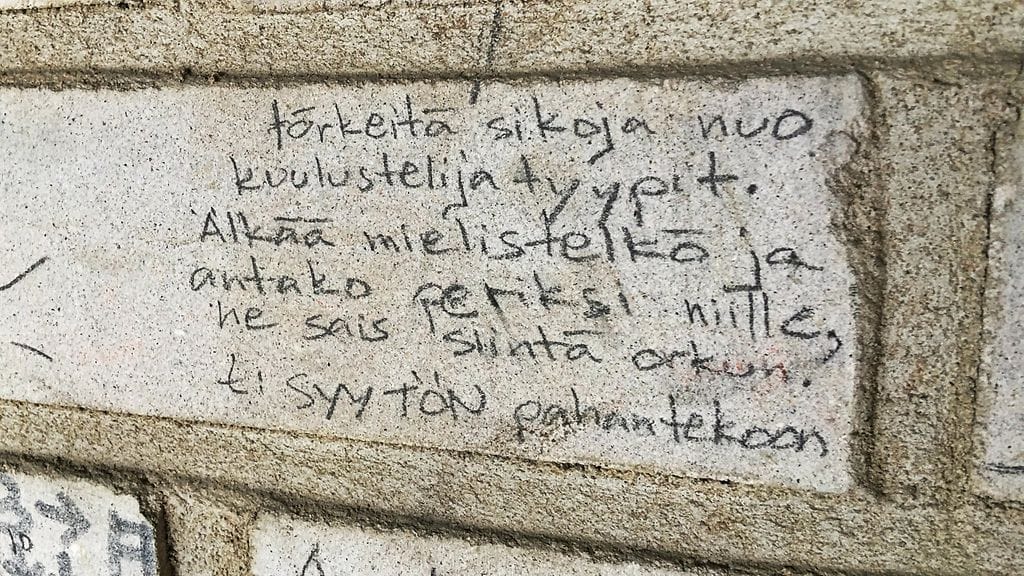 törkeitä sikoja nuo
kuulustelija tyypit.
Älkää mielistelkö ja
antako periksi niille,
he sais siintä orkun.
t. SYYTÖN pahantekoon